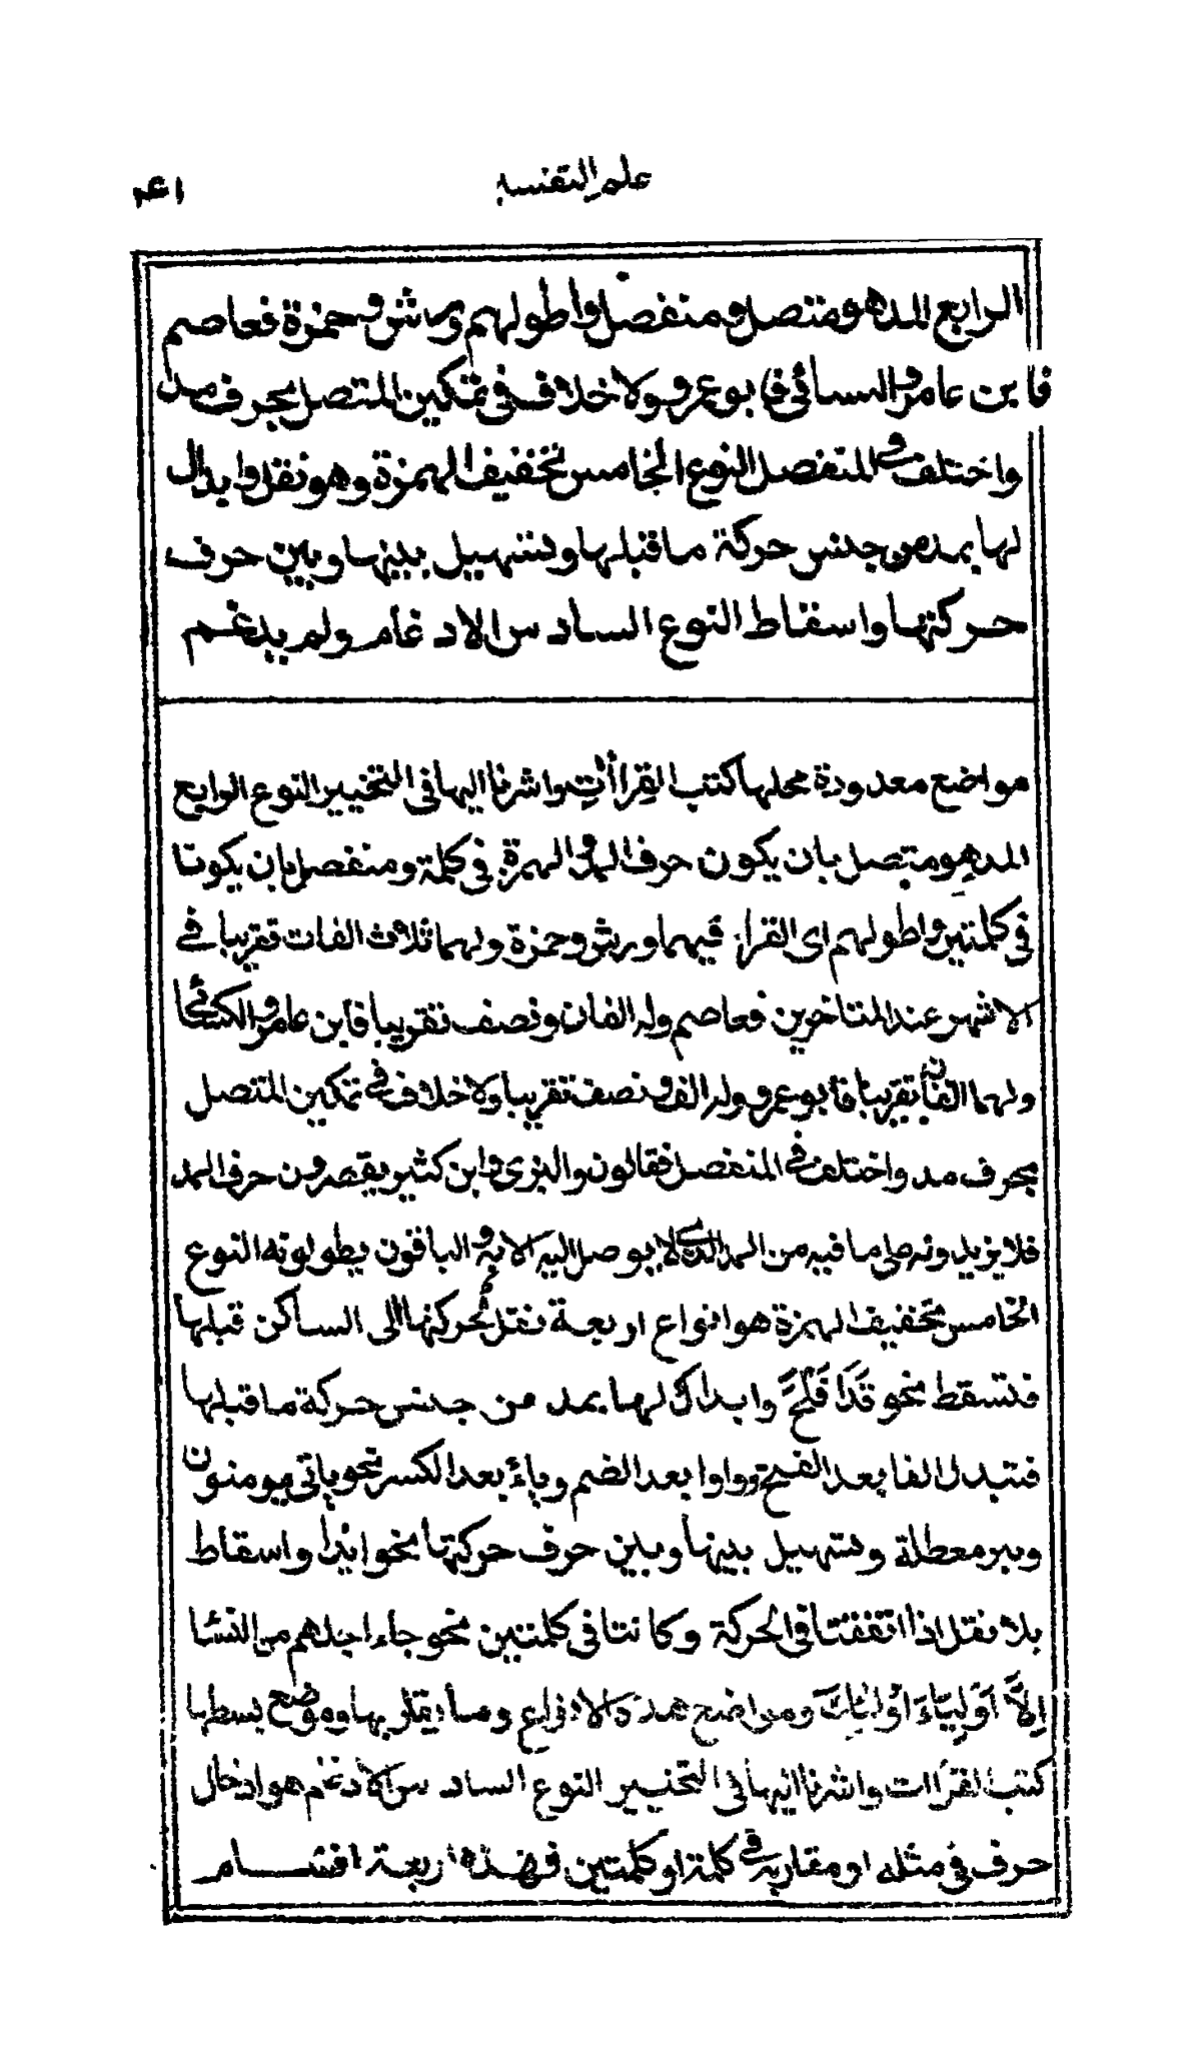 علم التفسير
٤١
الرابع المد هو متصل ومنفصل واطولهم ورش وحمزة فعاصم
فابن عامر والكسائي فابو عمرو ولا خلاف في تمكين المتصل بحرف مد
واختلف في المنفصل النوع الخامس تخفيف الهمزة وهو نقل وابدال
لها بمد من جنس حركة ما قبلها وتسهيل بينها وبين حرف
حركتها واسقاط النوع السادس الادغام ولم يدغم
مواضع معدودة محلها كتب القراآت واشرنا اليها في التحبير النوع الرابع
المد هو متصل بان يكون حرف المد والهمزة في كلمة ومنفصل بان يكونا
في كلمتين واطولهم اى القراء فيهما ورش وحمزة ولهما ثلاث الفات تقريبا في
الاشهر عند المتاخرين فعاصم وله الفان ونصف تقريبا فابن عامر والكسائي
ولهما الفان تقريبا فابو عمرو وله الف ونصف تقريبا ولا خلاف في تمكين المتصل
بحرف مد واختلف في المنفصل فقالون والبزى وابن كثير يقصرون حرف المد
فلا يزيدونه على ما فيه من المد الذى لا يوصل اليه الا به والباقون يطولونه النوع
الخامس تخفيف الهمزة هو انواع اربعة نقل لحركتها الى الساكن قبلها
فتسقط نحو قَدَ افْلَحَ وابدال لها بمد من جنس حركة ما قبلها
فتبدل الفا بعد الفتح وواوا بعد الضم وياءً بعد الكسر نحو ياتى يومنون
وبير معطلة وتسهيل بينها وبين حرف حركتها نحو ايذا واسقاط
بلا نقل اذا اتفقتا في الحركة وكانتا في كلمتين نحو جاء اجلهم من النسا
اِلاَّ اَوْلِيَاءَ اُولٰئِكَ ومواضع هذه الانواع وما يقال بها وموضع بسطها
كتب القراات واشرنا اليها في التحبير النوع السادس الادغام هو ادخال
حرف في مثله او مقاربه في كلمة او كلمتين فهذه اربعة اقسام